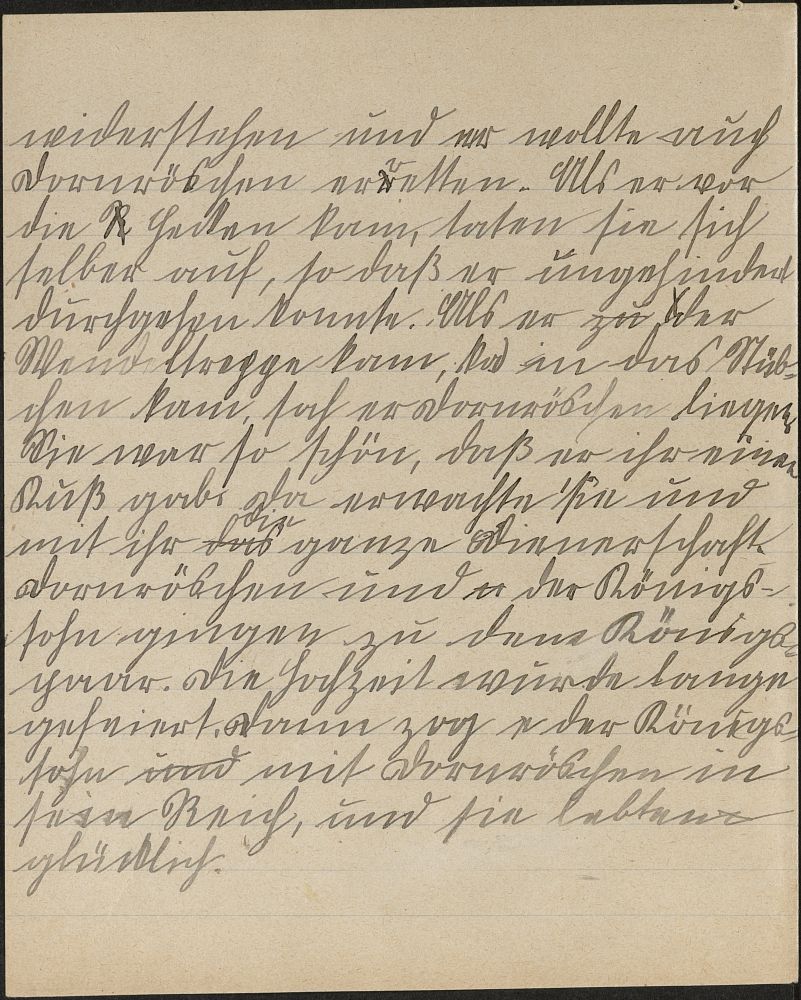 widerstehen und er wollte auch
Dornröschen erretten. Als er vor
die R Hecken kam, taten sie sich
selber auf, so daß er ungehindert
durchgehen konnte. Als er zu der
Wendeltreppe kam, in das Stüb-
chen kam, sah er Dornröschen liegen
Sie war so schön, daß er ihr einen
Kuß gab. Da erwachte sie und
mit ihr das die ganze Dienerschaft.
Dornröschen und er der Königs-
sohn gingen zu dem Königs-
paar. Die Hochzeit wurde lange
gefeiert. Dann zog e der Königs-
sohn und mit Dornröschen in
sein Reich, und sie lebten
glücklich.